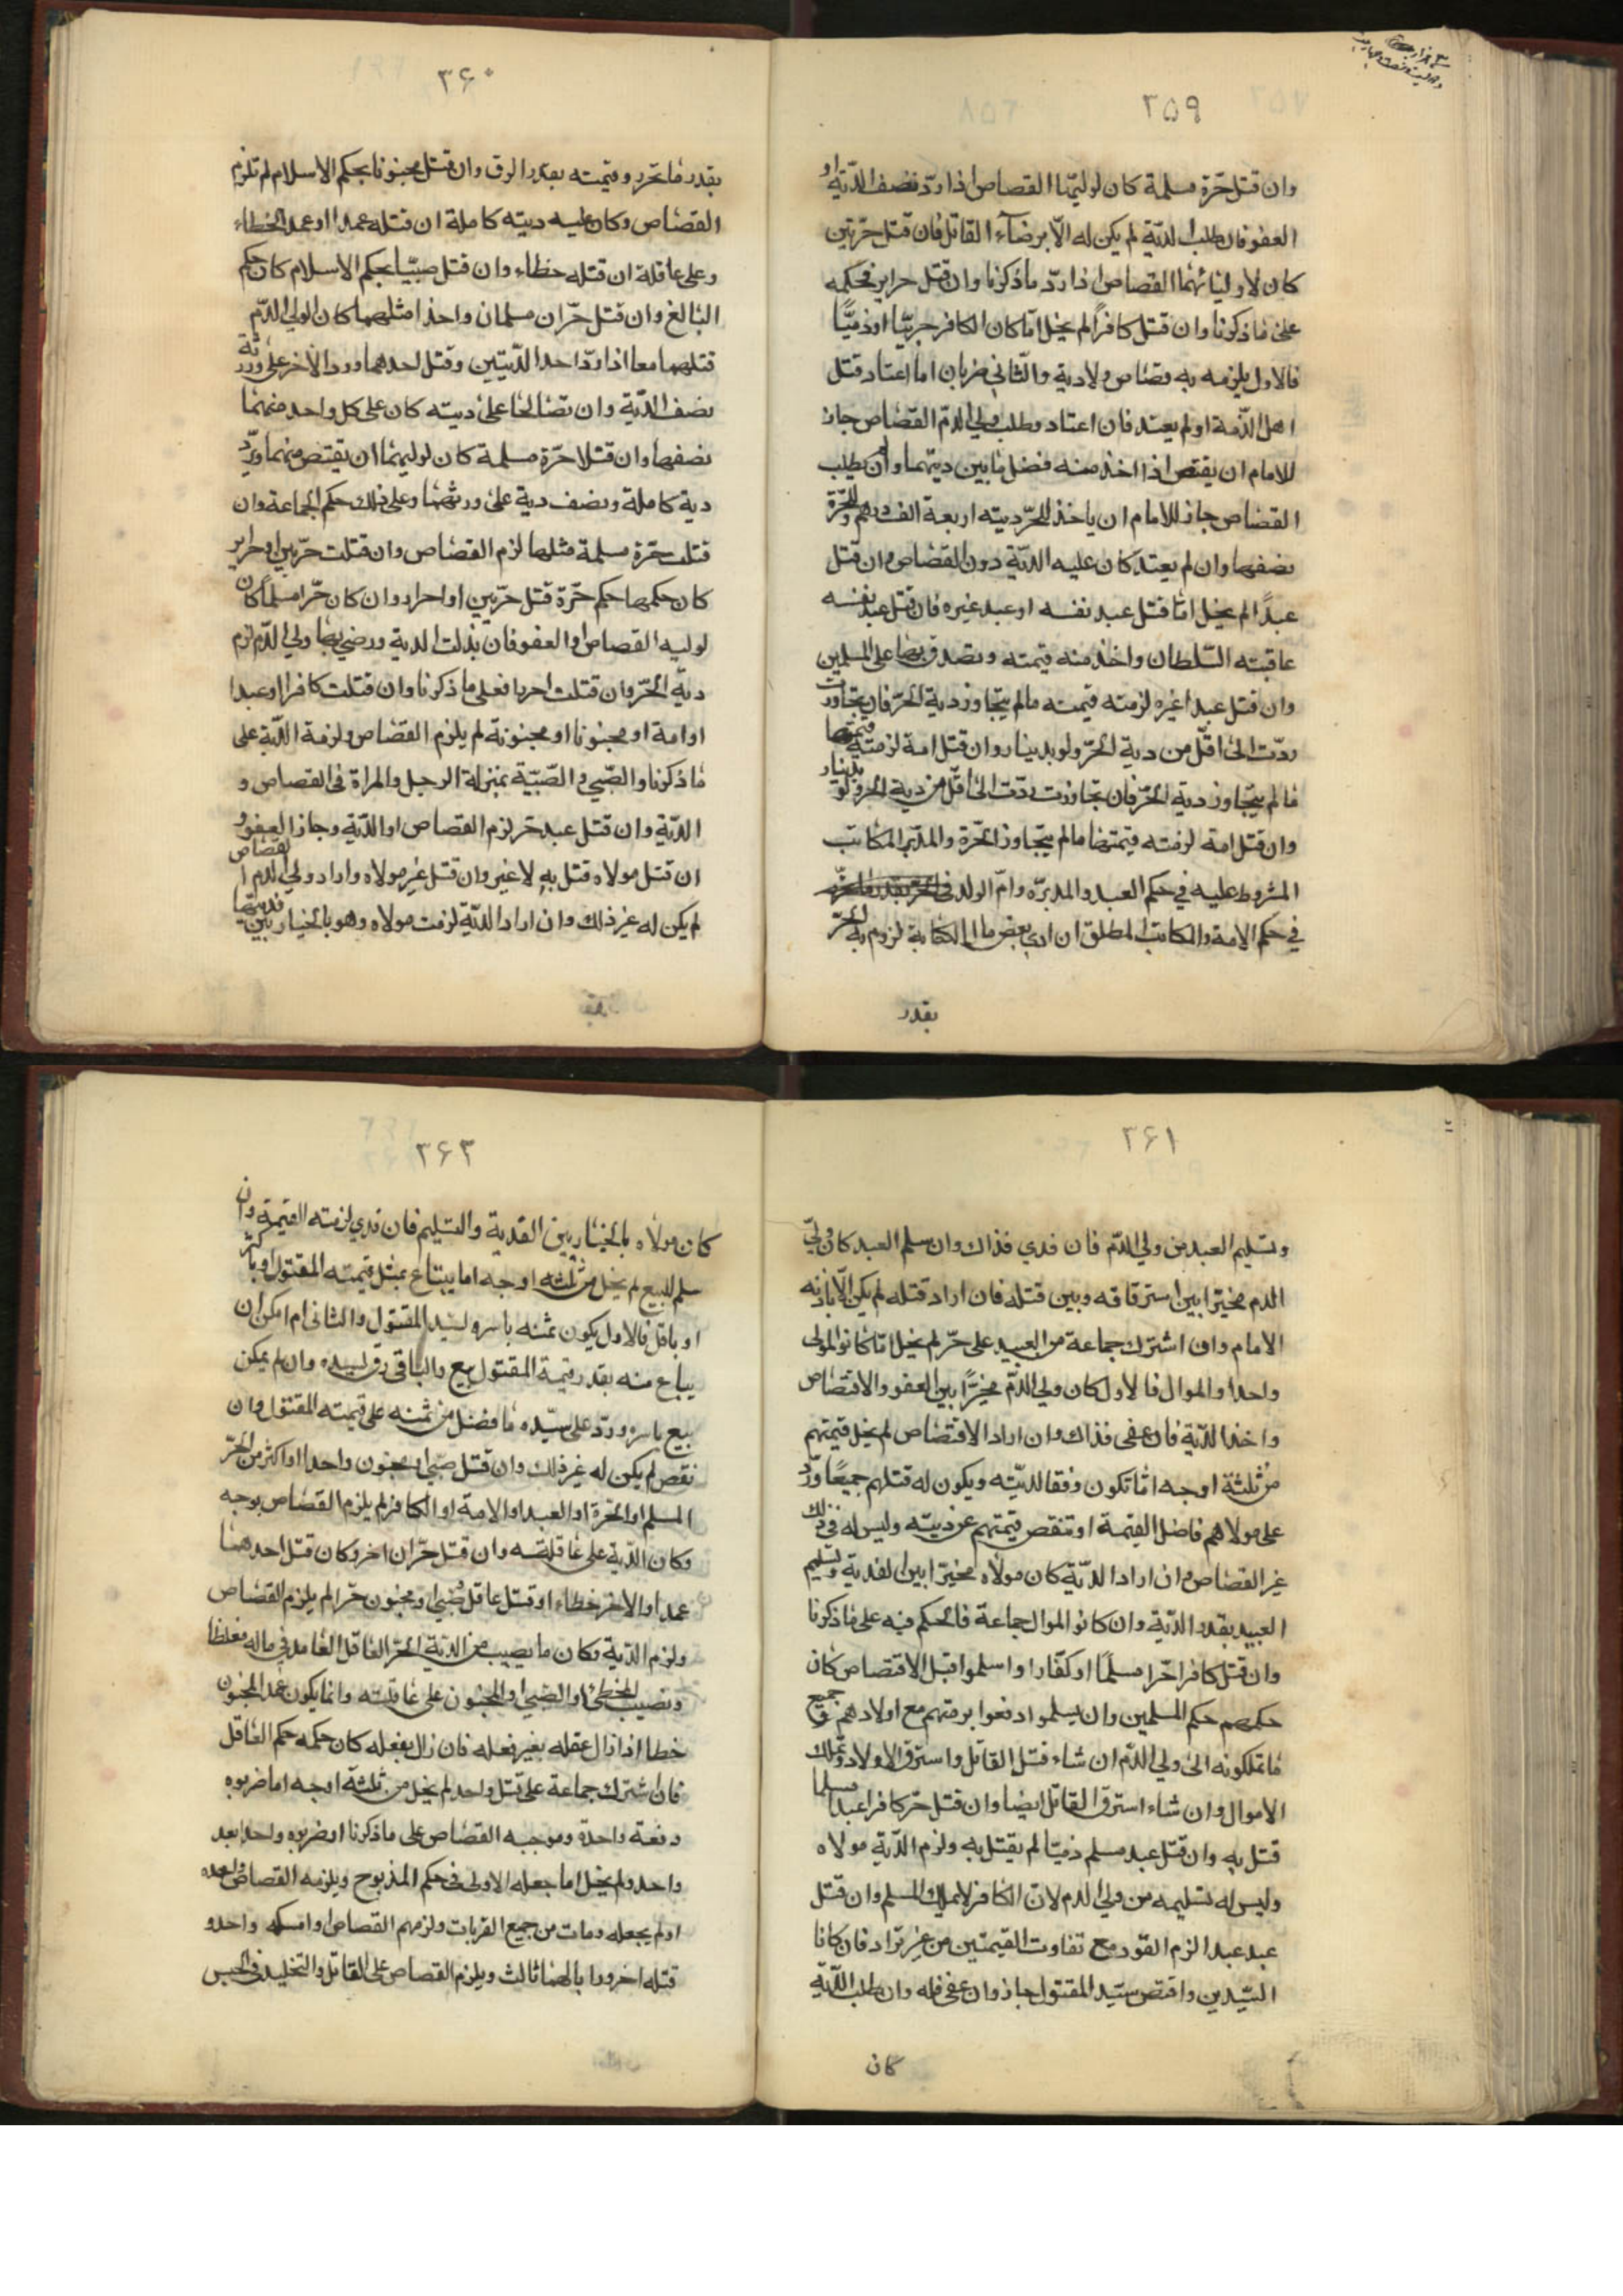 ٣٥٩
وان قتل حرّة مسلمة كان لوليّها القصاص اذا ردّ نصف الديّة او
العفو فان طلب الديّة لم يكن له الّا برضاء القاتل فان قتل حرّتين
كان لاوليائهما القصاص اذا ردّ ما ذكرنا وان قتل حراير فحكمه
على ما ذكرنا وان قتل كافرًا لم يخل امّا كان الكافر حربيّا او ذميّا
فالاول يلزمه به قصاص ولا دية والثّاني ضربان اما اعتاد قتل
اهل الذّمة او لم يعتد فان اعتاد وطلب ولي الدّم القصاص جاز
للامام ان يقتص اذا اخذ منه فضل ما بين ديتهما وان لم يطلب
القصاص جاز للامام ان ياخذ للحرّ ديته اربعة الف درهم وللحرّة
نصفها وان لم يعتد كان عليه الديّة دون القصاص وان قتل
عبدًا لم يخل امّا قتل عبد نفسه او عبد غيره فان قتل عبد نفسه
عاقبته السّلطان واخذ منه قيمته وتصدق بها على المسلمين
وان قتل عبدا غيره لزمته قيمته مالم يتجاوز دية الحرّ فان تجاوزت
ردّت الى اقلّ من دية الحرّ ولو بدينار وان قتل امة لزمته قيمتها
مالم يتجاوز دية الحرّ فان تجاوزت ردّت الى اقلّ من دية الحر ولو بدينار
وان قتل امة لزمته قيمتها مالم يتجاوز الحرّة والمدبّر المكاتب
المشروط عليه في حكم العبد والمدبرّه وامّ الولد
في حكم الامة والمكاتب المطلق ان ادى بعض مال الكتابة لزوم به الحرّ
بقدر
٣۶٠
بقدر ما تحرر وقيمته بقدر الرق وان قتل مجنونا بحكم الاسلام لم تلزم
القصاص وكان عليه ديته كاملة ان قتله عمدا او عمد الخطاء
وعلى عاقلة ان قتله خطاء وان قتل صبيّا بحكم الاسلام كان حكم
البالغ وان قتل حرّان مسلمان واحدا مثلهما كان لولي الدّم
قتلهما معا اذا ردّ احد الدّيتين وقتل احدهما وردّ الآخر على ورثة
نصف الديّة وان تصالحا على ديته كان على كل واحد منهما
نصفها وان قتلا حرّة مسلمة كان لوليهما ان يقتص منهما ويردّ
دية كاملة ونصف دية على ورثتهما وعلى ذلك حكم الجماعة وان
قتلت حرّة مسلمة مثلها لزم القصاص وان قتلت حرّتين او حراير
كان حكمها حكم حرّة قتل حرّتين او احرار وان كان حرّا مسلمًا كان
لوليه القصاص او العفو فان بذلت الدية ورضي بها ولي الدّم لزم
ديّة الحرّ وان قتلت احرارا فعلى ما ذكرنا وان قتلت كافرا او عبدا
او امة او مجنونا او مجنونة لم يلزم القصاص ولزمة الديّة على
ما ذكرنا والصّبي والصّبيّة بمنزلة الرجل والمراة في القصاص و
الديّة وان قتل عبد حرّ لزم القصاص او الديّة وجاز العفو و
ان قتل مولاه قتل به لا غير وان قتل غير مولاه واراد ولي الدم القصاص
لم يكن له غير ذلك وان اراد الديّة لزمت مولاه وهو بالخيار بين فديتها
٣۶١
وتسليم العبد من ولي الدّم فان فدي فذاك وان سلم العبد كان ولي
الدم مخيّرا بين استرقاقه وبين قتله فان اراد قتله لم يكن الّا باذنه
الامام وان اشترك جماعة من العبيد على حرّ لم يخل امّا كانوا لمولى
واحد او الموال فالاول كان ولي الدّم مخيّرًا بين العفو والاقتصاص
واخذ الديّة فان عفى فذاك وان اراد الاقتصاص لم يخل قيمتهم
من ثلثة اوجه امّا تكون وفقا لديّته ويكون له قتلهم جميعًا او ردّ
على مولاهم فاضل القيمة او تنقص قيمتهم عن ديته وليس له في ذلك
غير القصاص وان اراد الديّة كان مولاه مخيّرا بين الفدية وتسليم
العبيد بقدر الديّة وان كانوا لموال جماعة فالحكم فيه على ما ذكرنا
وان قتل كافر احرّا مسلمًا او كفّارا واسلموا قبل الاقتصاص كان
حكمهم حكم المسلمين وان لم يسلموا دفعوا برمتهم مع اولادهم و جميع
ما تملكونه الى ولي الدّم ان شاء قتل القاتل واسترق الاولاد وتملك
الاموال وان شاء استرق القاتل ايضا وان قتل حر كافر عبدا مسلما
قتل به وان قتل عبد مسلم ذميّا لم يقتل به ولزم الديّة مولاه
وليس له تسليمه من ولي الدم لانّ الكافر لا يملك المسلم وان قتل
عبد عبدا لزم القود مع تفاوت القيمتين من غير تراد فان كانا
السّيدين واقتص سيّد المقتول جاز وان عفى فله وان طلب الديّة
كان
٣۶٣
كان مولاه بالخيار بين الفدية والتسليم فان فدي لزمته القيمة وان
سلم للبيع لم يخل من ثلثه اوجه اما يبتاع بمثل قيمته المقتول او باكثر
او باقل فالاول يكون ثمنه باسره لسيد المقتول والثانى ام امكن ان
يباع منه بقدر قيمة المقتول بيع والباقى رق لسيده وان لم يمكن
بيع باسره وردّ على سيّده ما فضل من ثمنه على قيمته المقتول وان
نقص لم يكن له غير ذلك وان قتل صبّي او مجنون واحدا او اكثر من الحرّ
المسلم او الحرة او العبد او الامة او الكافر لم يلزم القصاص بوجه
وكان الديّة على عاقلته وان قتل حرّان اخر وكان قتل احدهما
عمدا والاخر خطاء او قتل عاقل وصبي او مجنون حرّا لم يلزم القصاص
ولزم الديّة وكان ما يصيب من الديّة الحرّ العاقل العامد في ماله مغلظا
ونصيب المخطئ او الصّبي او المجنون على عاقلته وانما يكون عمد المجنون
خطا اذا زال عقله بغير فعله فان زال بفعله كان حكمه حكم العاقل
فان اشترك جماعة على قتل واحد لم يخل من ثلثة اوجه اما ضربوه
دفعة واحدة وموجبه القصاص على ما ذكرنا او ضربوه واحدا بعد
واحد ولم يخل اما جعله الاول في حكم المذبوح ويلزمه القصاص وحده
او لم يجعله ومات من جميع الضربات ولزمهم القصاص او امسكه واحد و
قتله اخر ورا بالهما ثالث ويلزم القصاص على القاتل والتخليد في الحبس